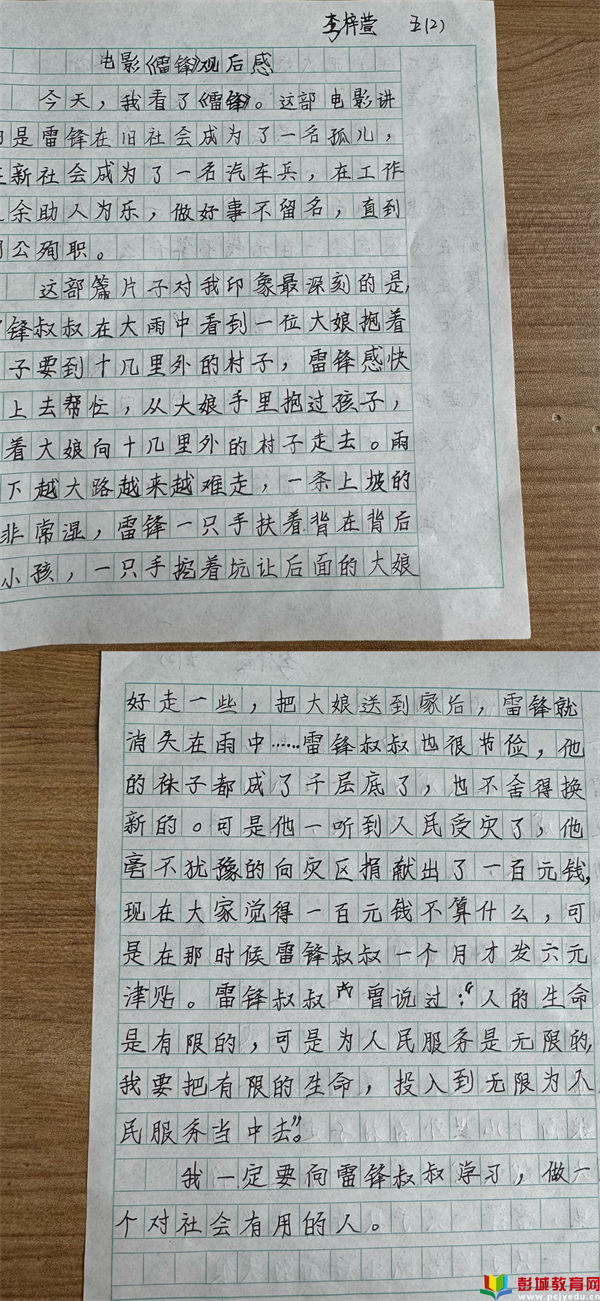 李梓萱 五(2)
电影《雷锋》观后感
今天，我看了《雷锋》。这部电影讲
的是雷锋在旧社会成为了一名孤儿，
在新社会成为了一名汽车兵，在工作
之余助人为乐，做好事不留名，直到
因公殉职。
这部篇片子对我印象最深刻的是，
雷锋叔叔在大雨中看到一位大娘抱着
子要到十几里外的村子，雷锋感快
上去帮忙，从大娘手里抱过孩子，
着大娘向十几里外的村子走去。雨
下越大路越来越难走，一条上坡的
非常湿，雷锋一只手扶着背在背后
小孩，一只手挖着坑让后面的大娘
好走一些，把大娘送到家后，雷锋就
消失在雨中……雷锋叔叔也很节俭，他
的袜子都成了千层底了，也不舍得换
新的。可是他一听到人民受灾了，他
毫不犹豫的向灾区捐献出了一百元钱，
现在大家觉得一百元钱不算什么，可
是在那时候雷锋叔叔一个月才发六元
津贴。雷锋叔叔曾说过：“人的生命
是有限的，可是为人民服务是无限的，
我要把有限的生命，投入到无限为人
民服务当中去”。
我一定要向雷锋叔叔学习，做一
个对社会有用的人。
彭城教育网
www.pcjyedu.cn